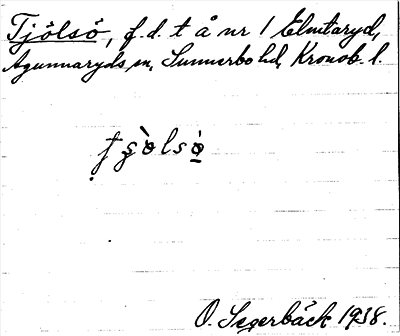 Tjölsö, f.d. t å nr 1 Elmtaryd,
Agunnaryds sn, Sunnerbo hd, Kronob. l.
O. Segerbäck 1938.